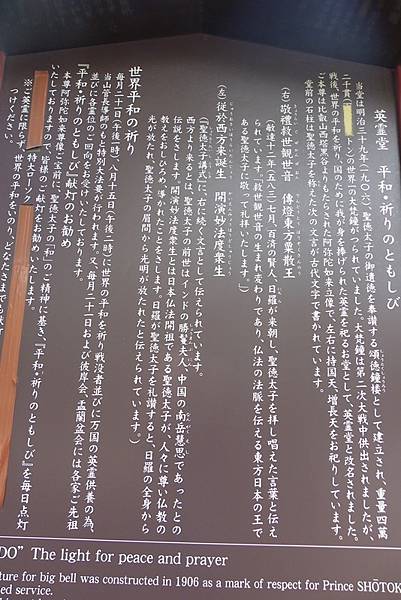 英霊堂　平和・祈りのともしび
当堂は明治三十九年（一九〇六）聖徳太子の御遺徳を奉讃する頌徳鐘楼として建立され、重量四萬
二千貫（
）の世界一の大梵鐘がつられていました。大梵鐘は第二次大戦中供出されましたが、
戦後、世界の平和を祈り、国のために我が身を捧げられた英霊を祀るお堂として、英霊堂と改名されました。
ご本尊は比叡山西塔寶谷よりもたらされた阿弥陀如来坐像で、左右に持国天、増長天をお祀りしています。
堂前の石柱は聖徳太子を称えた次の文言が古代文字で書かれています。
（右）敬禮救世観世音　傳燈東方粟散王
（敏達十二年（五八三）七月、百済の賢人、日羅が来朝し、聖徳太子を拝し唱えた言葉と伝え
られています。「救世観世音の生まれ変わりであり、仏法の法脈を伝える東方日本の王で
ある聖徳太子に敬って礼拝いたします。」）
（左）従於西方来誕生　開演妙法度衆生
（「聖徳太子講式」に、右に続く文言として伝えられています。
西方より来るとは、聖徳太子の前世はインドの勝鬘夫人、中国の南岳慧思であったとの
伝説をさします。開演妙法度衆生とは日本仏法開祖である聖徳太子が、人々に尊い仏教の
教えをおしひろめ、導かれたことをさします。日羅が聖徳太子を礼讃すると、日羅の全身から
光が放たれ、聖徳太子の眉間から光明が放たれたと伝えられています。）
世界平和の祈り
毎月二十一日（午後一時）、八月十五日（午後二時）に世界の平和を祈り戦没者並びに万国の英霊供養の為、
当山管長導師のもと特別大法要が行われます。又、毎月二十一日および彼岸会、盂蘭盆会には各家ご先祖
並びに各霊位のご回向をお受けいたしております。
『平和・祈りのともしび』献灯のお勧め
本尊阿弥陀如来尊像ご宝前に、聖徳太子の「和」のご精神に基き、『平和・祈りのともしび』を毎日点灯
いたしておりますので、皆様のご献灯をお勧めいたします。
特大ローソク
※ご英霊に限らず、世界の平和をいのり、どなたさまでも献灯
つけください。
DO” The light for peace and prayer
ture for big bell was constructed in 1906 as a mark of respect for Prince SHŌTOK
ed service.